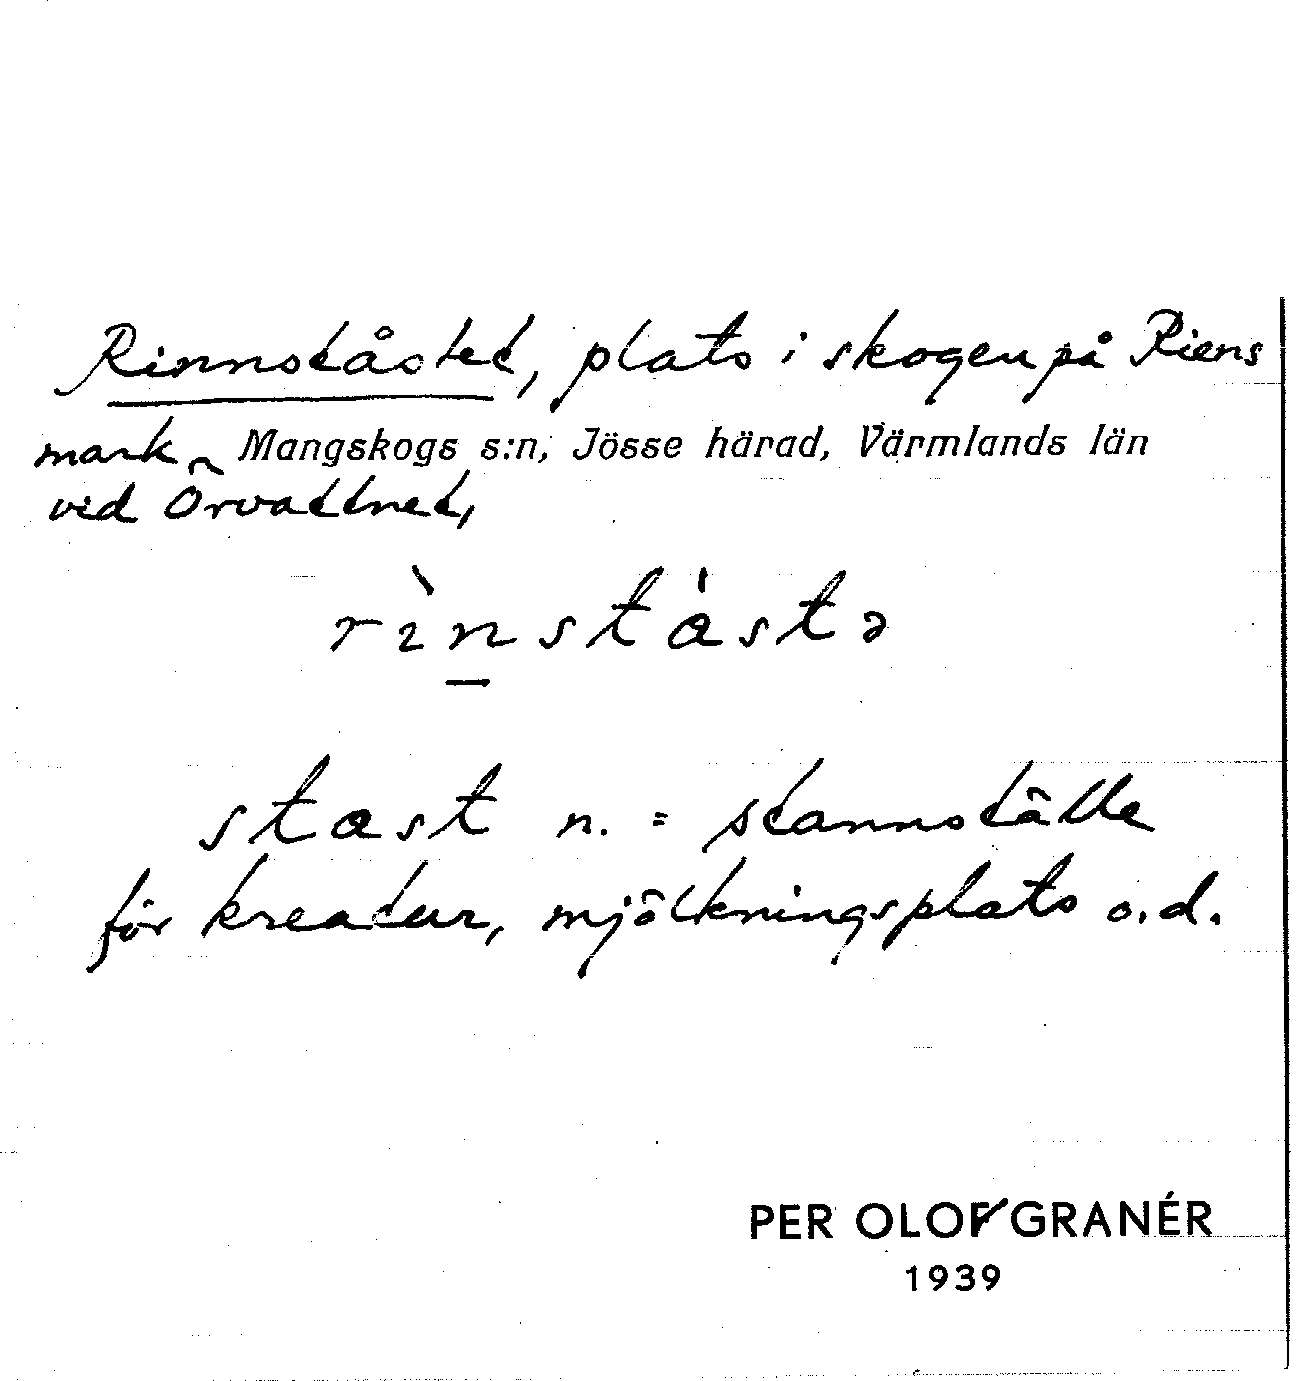 Rinnståstet, plats i skogen på Riens
mark, Mangskogs s:n, Jösse härad, Värmlands län
vid Örvattnet,
rìnstástə
stast n. = stannställe
för kreatur, mjölkningsplats o.d.
PER OLOF GRANÉR
1939